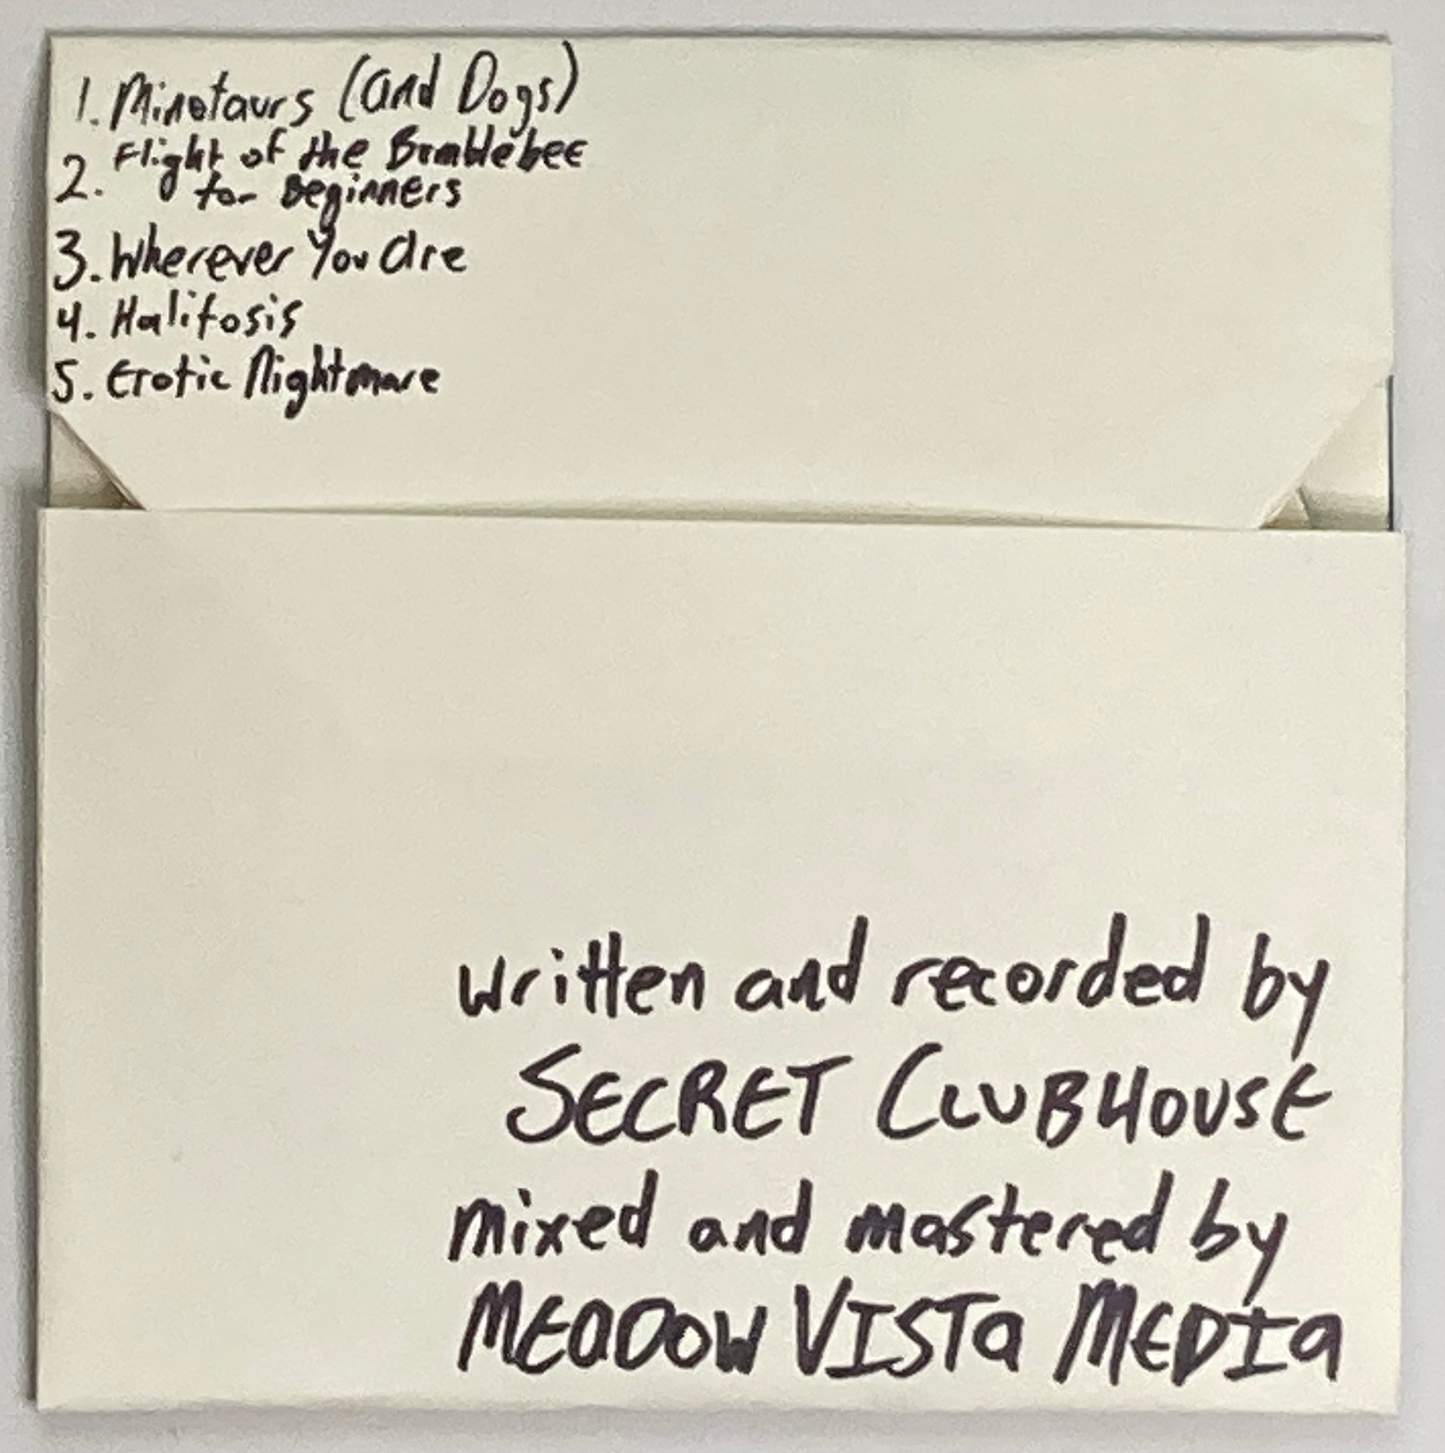 1. Minotaurs (and Dogs)
2. Flight of the Bumblebee
for Beginners
3. Wherever You are
4. Halitosis
5. Erotic Nightmare
written and recorded by
SECRET CLUBHOUSE
mixed and mastered by
MEADOW VISTA MEDIA